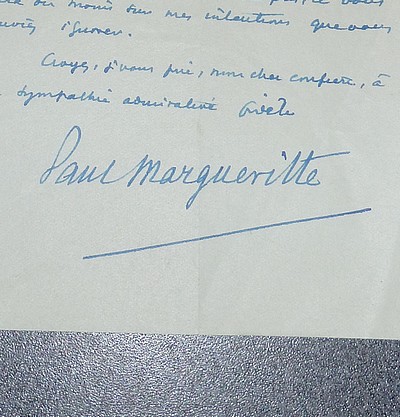 vous
ou moins sur mes intentions que vous
ignorer.
Croyez, je vous prie, mon cher confrère, à
sympathie admirative
Paul Margueritte